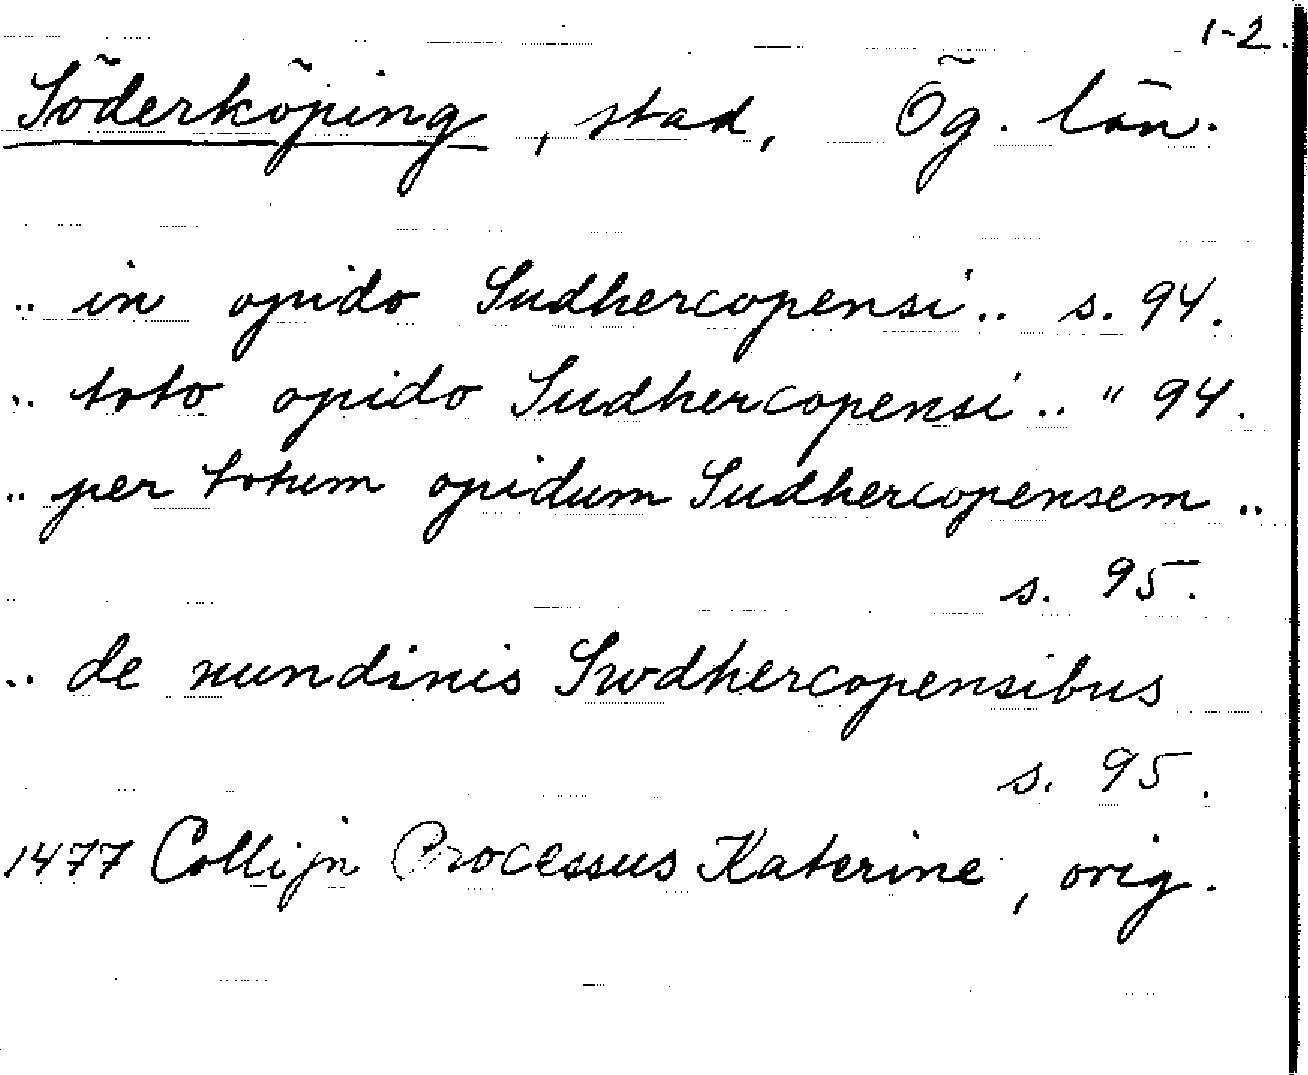 1-2.
Söderköping, stad, Ög. län.
.. in opido Sudhercopensi .. s. 94.
.. toto opido Sudhercopensi .. " 94.
.. per totum opidum Sudhercopensem ..
s. 95.
.. de nundinis Swdhercopensibus
s. 95.
1477 Collijn Processus Katerine, orig.